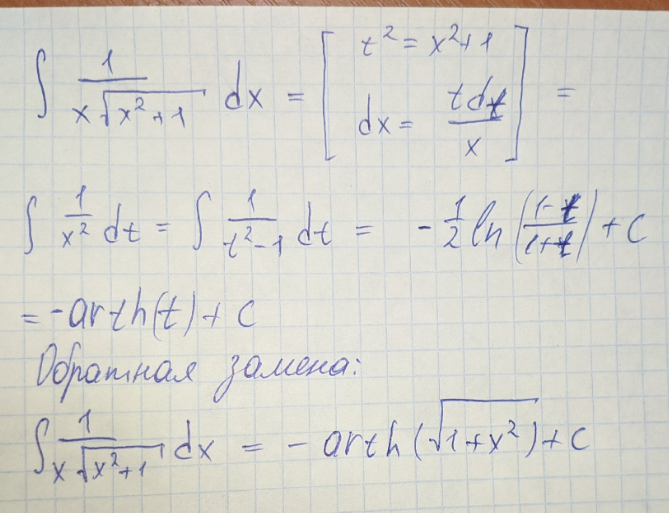 ∫ 1/(x√(x²+1)) dx = [ t² = x²+1
dx = tdt/x ] =
∫ 1/x² dt = ∫ 1/(t²-1) dt = -1/2 ln((1-t)/(1+t)) + C
= -arth(t) + C
Обратная замена:
∫ 1/(x√(x²+1)) dx = -arth(√(1+x²)) + C